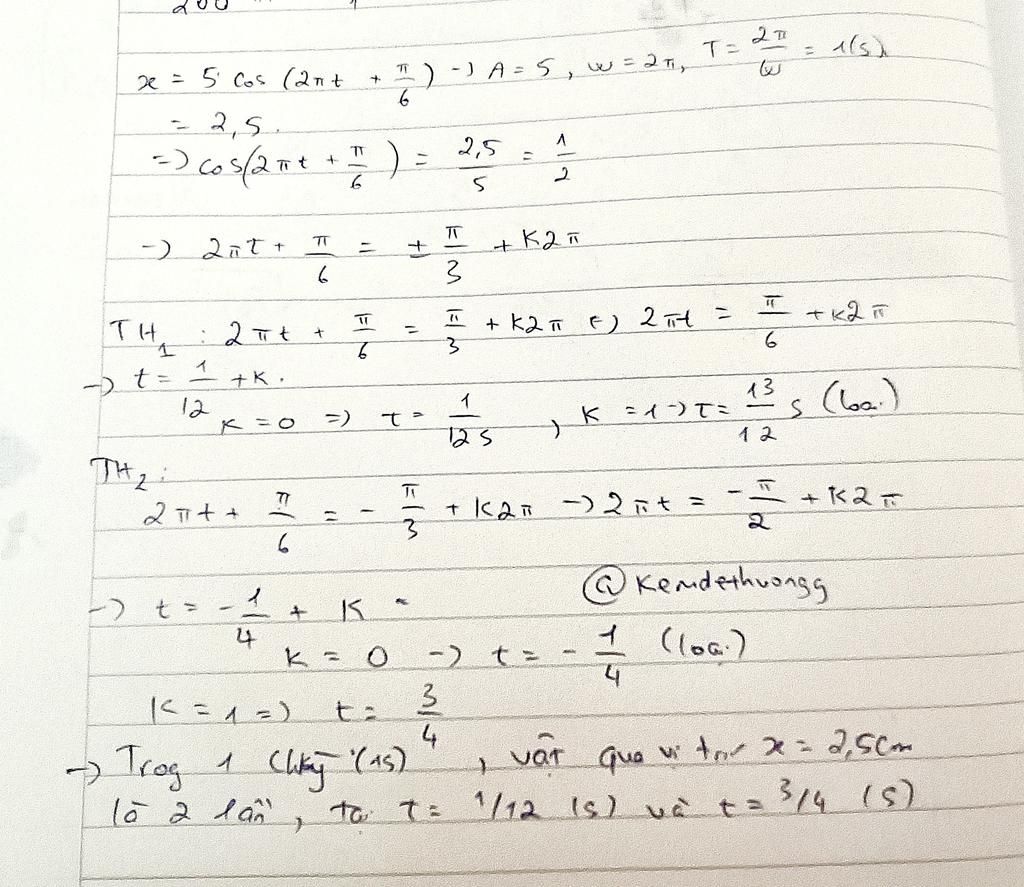 200
x = 5 cos (2πt + π/6) → A = 5, ω = 2π, T = 2π/ω = 1(s)
= 2,5.
=> cos(2πt + π/6) = 2,5/5 = 1/2
→ 2πt + π/6 = ± π/3 + K2π
TH1 : 2πt + π/6 = π/3 + K2π (=) 2πt = π/6 + K2π
→ t = 1/12 + K.
K = 0 => t = 1/12 s , K = 1 → t = 13/12 s (loại)
TH2 :
2πt + π/6 = - π/3 + K2π → 2πt = - π/2 + K2π
→ t = - 1/4 + K
@ Kemdethuongg
K = 0 → t = - 1/4 (loại)
K = 1 => t = 3/4
→ Trog 1 Chkỳ (1s) , vật qua vị trí x = 2,5cm
là 2 lần , tại t = 1/12 (s) và t = 3/4 (s)